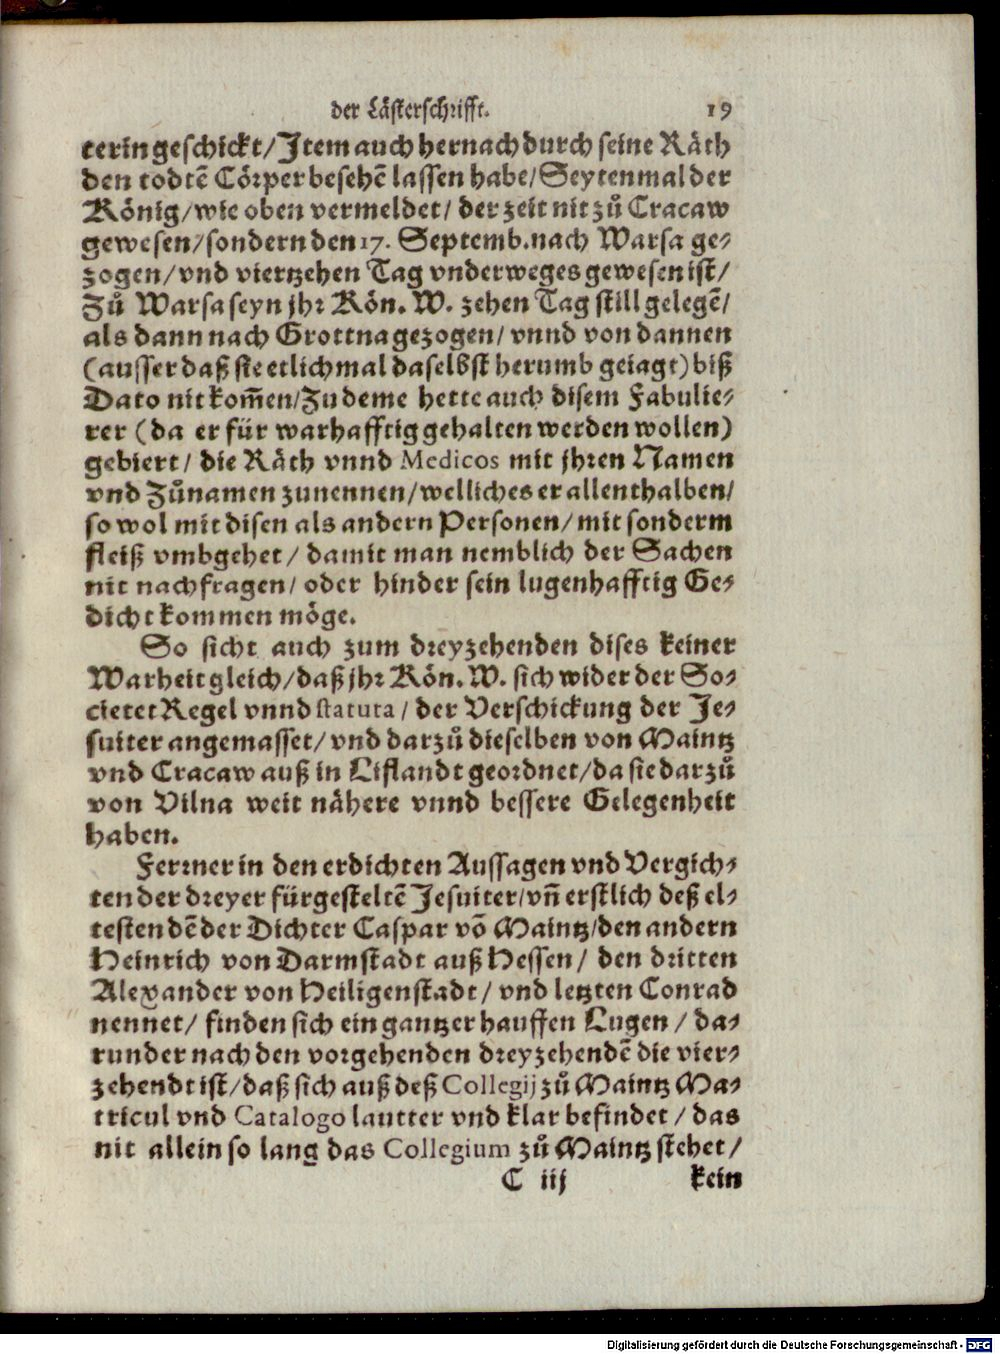 der Lästerschrifft. 19
terin geschickt/ Item auch hernach durch seine Räth
den todtē Cörper besehē lassen habe/ Seytenmal der
König/ wie oben vermeldet/ der zeit nit zů Cracaw
gewesen/ sondern den 17. Septemb. nach Warsa ge-
zogen/ vnd viertzehen Tag vnderweges gewesen ist/
Zů Warsa seyn jhr Kön. W. zehen Tag still gelegē/
als dann nach Grottna gezogen/ vnnd von dannen
(ausser daß sie etlich mal daselbst herumb geiagt) biß
Dato nit kom̃en/ Zu deme hette auch disem Fabulie-
rer (da er für warhafftig gehalten werden wollen)
gebiert/ die Räth vnnd Medicos mit jhren Namen
vnd Zůnamen zunennen/ welliches er allenthalben/
so wol mit disen als andern Personen/ mit sonderm
fleiß vmbgehet/ damit man nemblich der Sachen
nit nachfragen/ oder hinder sein lugenhafftig Ge-
dicht kommen möge.
So sicht auch zum dreyzehenden dises keiner
Warheit gleich/ daß jhr Kön. W. sich wider der So-
cietet Regel vnnd statuta/ der Verschickung der Je-
suiter angemasset/ vnd darzů dieselben von Maintz
vnd Cracaw auß in Liflandt geordnet/ da sie darzů
von Vilna weit nähere vnnd bessere Gelegenheit
haben.
Ferrner in den erdichten Aussagen vnd Vergich-
ten der dreyer fürgesteltē Jesuiter/ vñ erstlich deß el-
testen dē der Dichter Caspar vō Maintz/ den andern
Heinrich von Darmstadt auß Hessen/ den dritten
Alexander von Heiligenstadt/ vnd letzten Conrad
nennet/ finden sich ein gantzer hauffen Lugen/ da-
runder nach den vorgehenden dreyzehendē die vier-
zehendt ist/ daß sich auß deß Collegij zů Maintz Ma-
tricul vnd Catalogo lautter vnd klar befindet/ das
nit allein so lang das Collegium zů Maintz stehet/
C iij kein
Digitalisierung gefördert durch die Deutsche Forschungsgemeinschaft - DFG